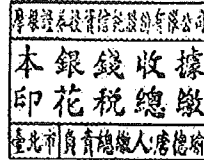 摩根證券投資信託股份有限公司
本銀錢收據
印花税總繳
臺北市 負責總繳人:唐德瑜